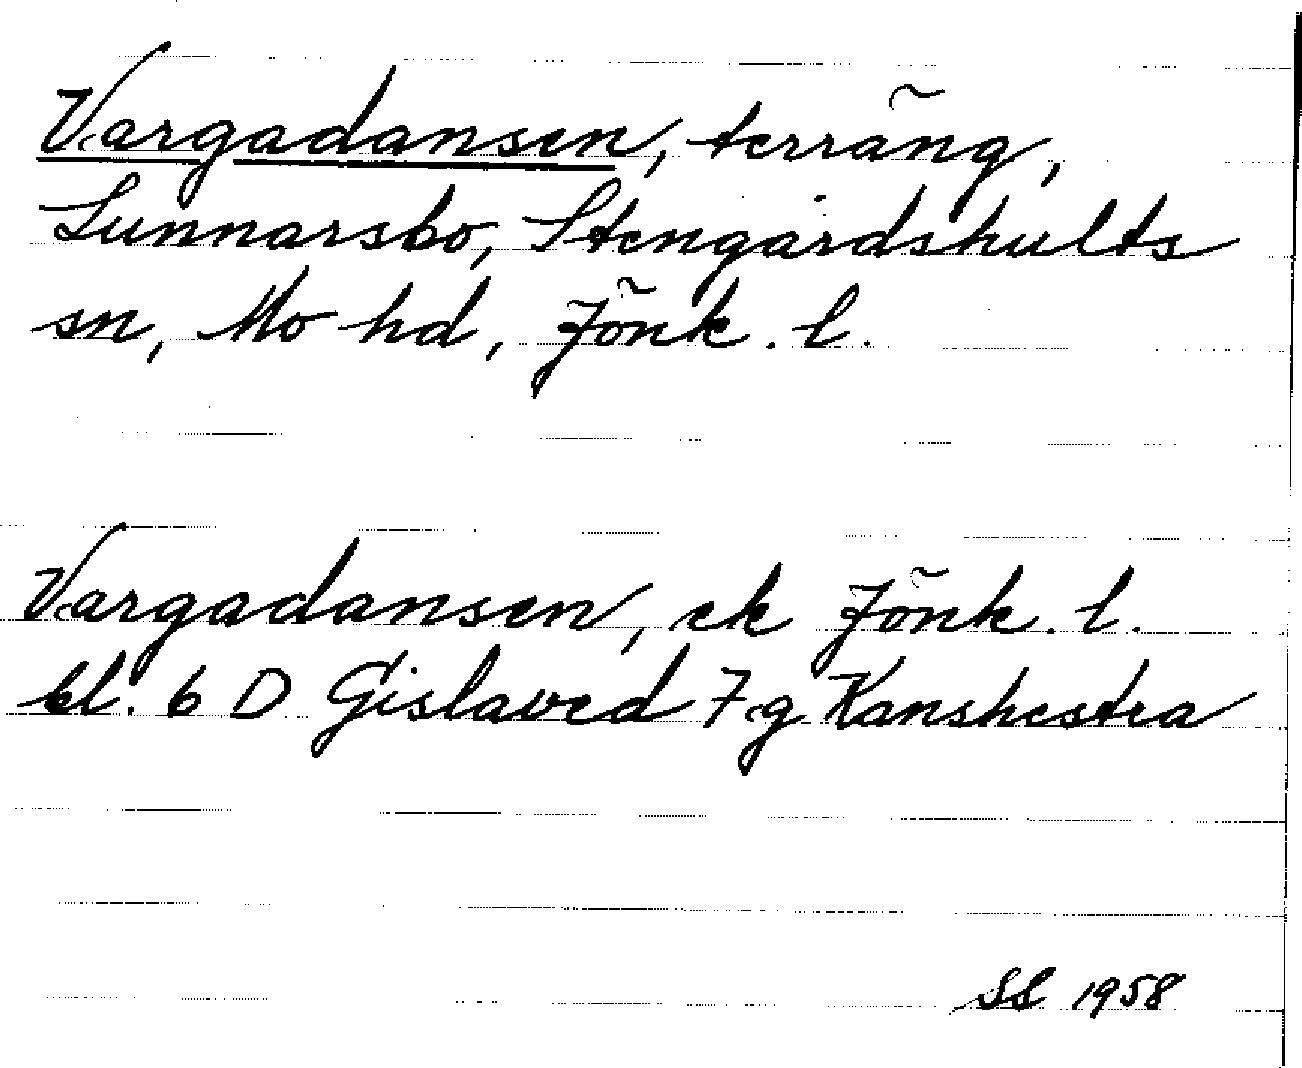 Vargadansen, terräng,
Lunnarsbo, Stengårdshults
sn, Mo hd, Jönk. l.
Vargadansen, ek Jönk. l.
bl. 6 D Gislaved 7 g Kanshestra
SL 1958